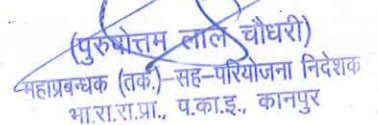 (पुरुषोत्तम लाल चौधरी)
महाप्रबन्धक (तक.)-सह-परियोजना निदेशक
भा.रा.रा.प्रा., प.का.इ., कानपुर